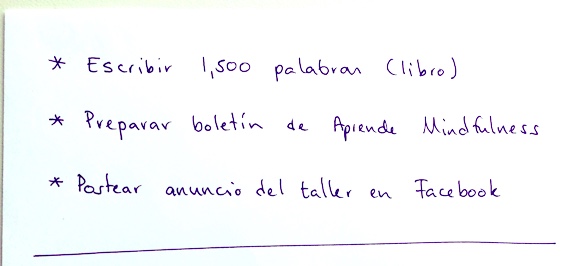 * Escribir 1,500 palabras (libro)
* Preparar boletín de Aprende Mindfulness
* Postear anuncio del taller en Facebook